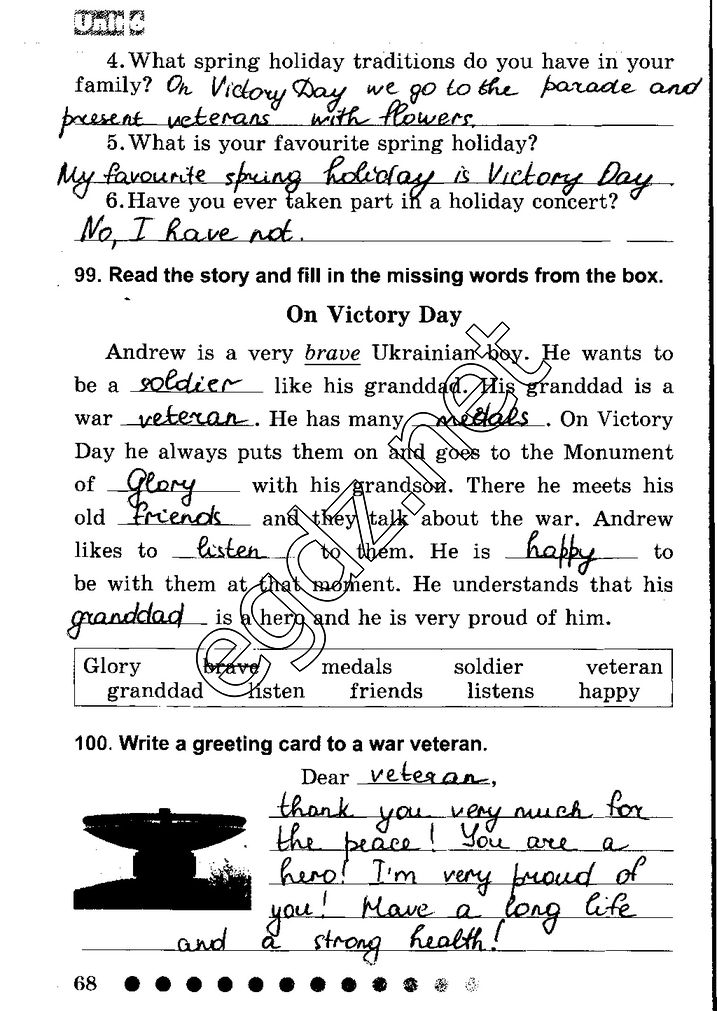 Unit 6
4. What spring holiday traditions do you have in your
family? On Victory Day we go to the parade and
present veterans with flowers.
5. What is your favourite spring holiday?
My favourite spring holiday is Victory Day.
6. Have you ever taken part in a holiday concert?
No, I have not.
99. Read the story and fill in the missing words from the box.
On Victory Day
Andrew is a very brave Ukrainian boy. He wants to
be a soldier like his granddad. His granddad is a
war veteran. He has many medals. On Victory
Day he always puts them on and goes to the Monument
of Glory with his grandson. There he meets his
old friends and they talk about the war. Andrew
likes to listen to them. He is happy to
be with them at that moment. He understands that his
granddad is a hero and he is very proud of him.
Glory brave medals soldier veteran
granddad listen friends listens happy
100. Write a greeting card to a war veteran.
Dear veteran,
thank you very much for
the peace! You are a
hero! I'm very proud of
you! Have a long life
and a strong health!
68
egdz.net